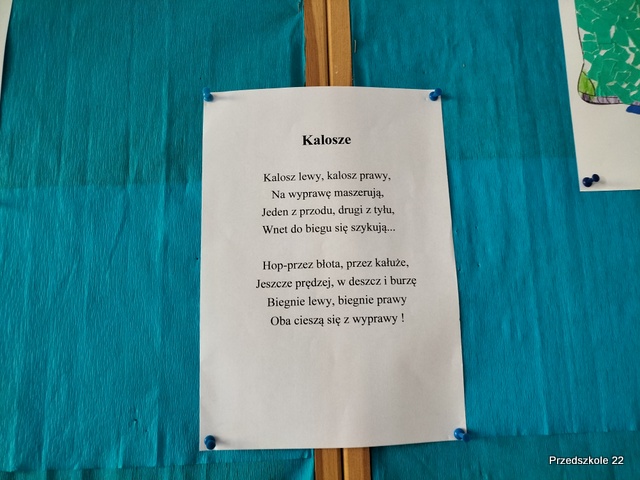 Kalosze
Kalosz lewy, kalosz prawy,
Na wyprawę maszerują,
Jeden z przodu, drugi z tyłu,
Wnet do biegu się szykują...
Hop-przez błota, przez kałuże,
Jeszcze prędzej, w deszcz i burzę
Biegnie lewy, biegnie prawy
Oba cieszą się z wyprawy !
Przedszkole 22